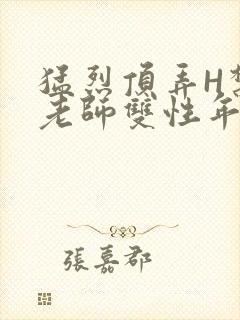 猛烈頂弄H
老師雙性年
張嘉郡